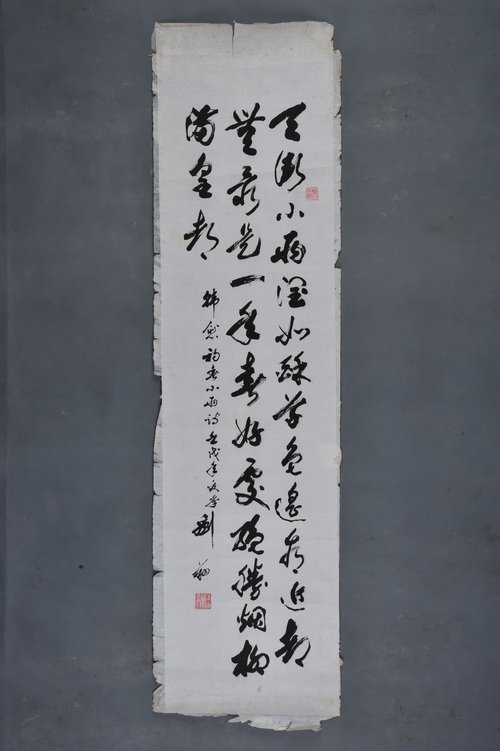 天街小雨潤如酥草色遙看近却
無最是一年春好處絕勝烟柳
滿皇都
韓愈初春小雨詩壬戌年
劉